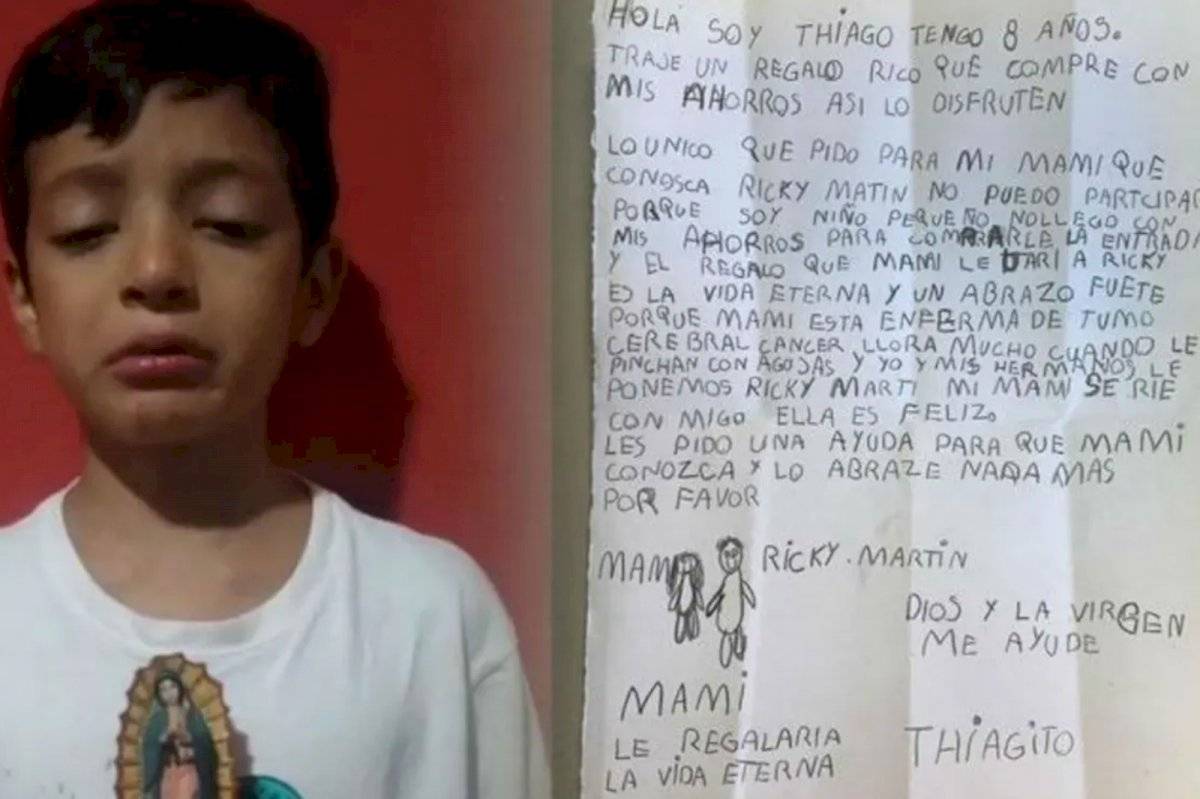 HOLA SOY THIAGO TENGO 8 AÑOS.
TRAJE UN REGALO RICO QUE COMPRE CON
MIS AHORROS ASI LO DISFRUTEN
LO UNICO QUE PIDO PARA MI MAMI QUE
CONOSCA RICKY MATIN NO PUEDO PARTCIPAR
PORQUE SOY NIÑO PEQUEÑO NOLLEGO CON
MIS AHORROS PARA COMPRARLE LA ENTRADA
Y EL REGALO QUE MAMI LE DARI A RICKY
ES LA VIDA ETERNA Y UN ABRAZO FUETE
PORQUE MAMI ESTA ENFERMA DE TUMO
CEREBRAL CANCER, LLORA MUCHO CUANDO LE
PINCHAN CON AGOSAS Y YO Y MIS HERMANOS LE
PONEMOS RICKY MARTI MI MAMI SE RIE
CON MIGO ELLA ES FELIZ.
LES PIDO UNA AYUDA PARA QUE MAMI
CONOZCA Y LO ABRAZE NADA MAS
POR FAVOR
MAMI RICKY.MARTIN
DIOS Y LA VIRGEN
ME AYUDE
MAMI
LE REGALARIA
LA VIDA ETERNA
THIAGITO